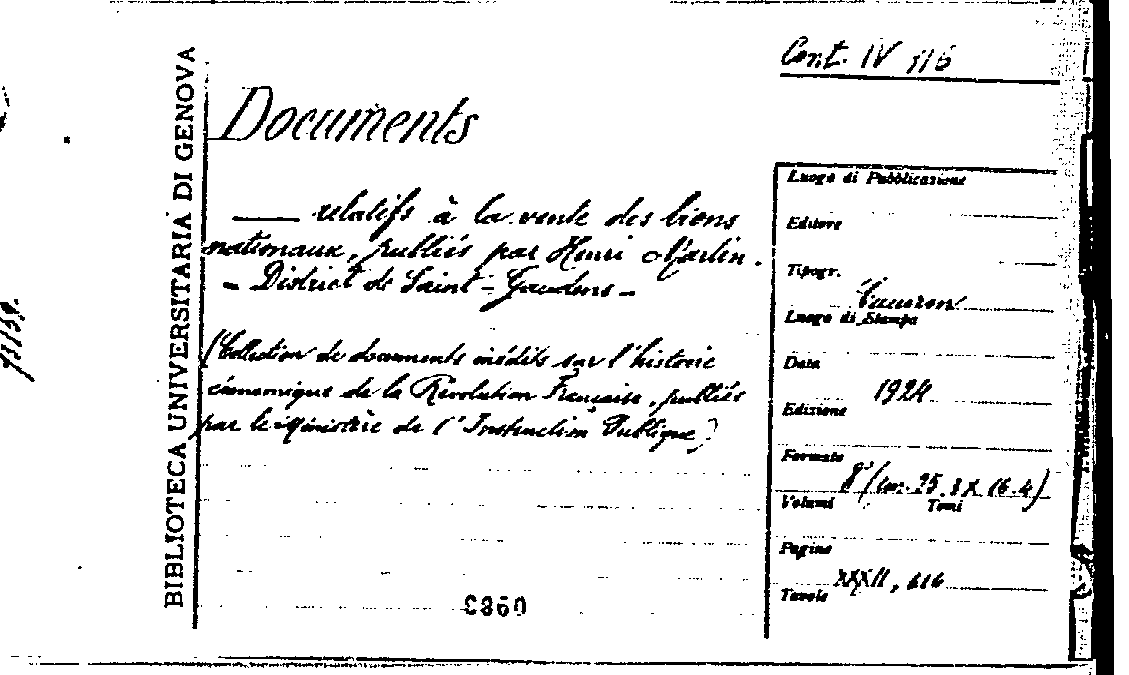 Cont. IV 116
BIBLIOTECA UNIVERSITARIA DI GENOVA
Documents
relatifs à la vente des biens
nationaux, publiés par Henri Martin.
- District de Saint-Gaudens -
(Collection de documents inédits sur l'histoire
économique de la Révolution Française, publiés
par le Ministère de l'Instruction Publique)
Luogo di Pubblicazione
Editore
Tipogr.
Luogo di Stampa
Data
1924
Edizione
Formato
8° (cm. 25.8 X 16.4)
Volumi Tomi
Pagine
XXXII, 616
Tavole